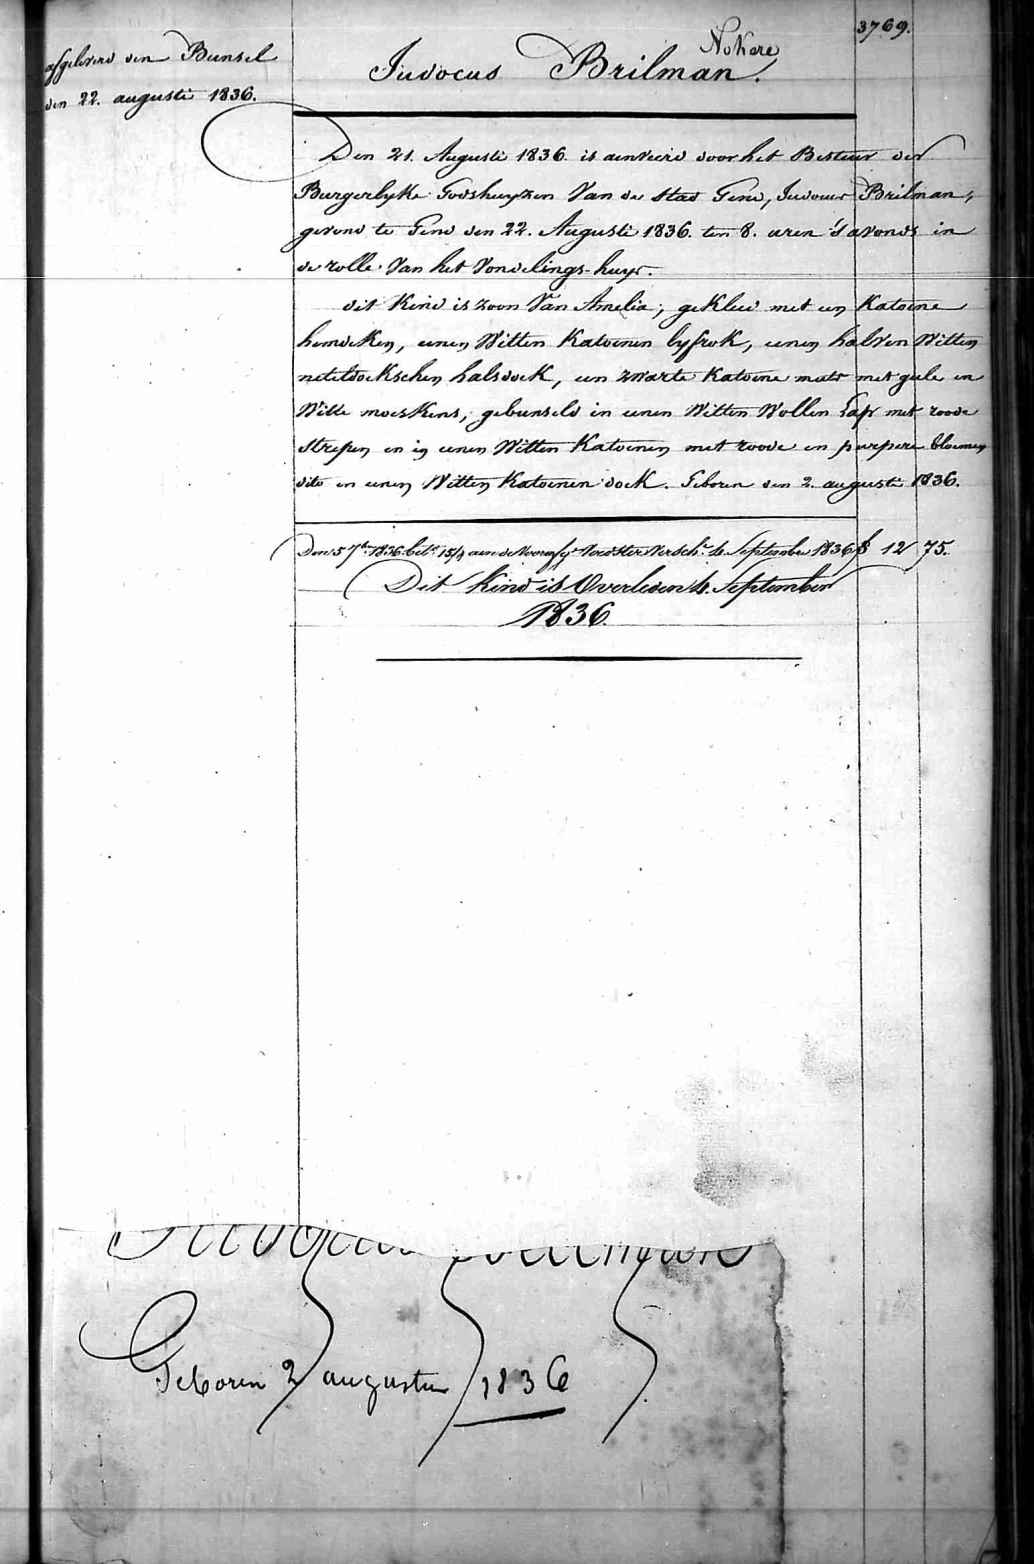 3769.
Nokere
afgeleverd den Bunsel
den 22. augusti 1836.
Judocus Brilman.
Den 21. Augusti 1836. is aenveird door het Bestuer der
Burgerlyke Godshuyzen Van de stad Gend, Judocus Brilman,
gevond te Gend den 22. Augusti 1836. ten 8. uren 's avonds in
de rolle Van het Vondelings-huys.
dit Kind is zoon Van Amelia, gekleed met een Katoene
hemdeken, eenen Witten Katoenen lyfrok, eenen halven Witten
neteldoekschen halsdoek, een zwarte Katoene muts met geele en
Witte moeskens, gebunseld in eenen Witten Wollen Lap met roode
strepen en in eenen Witten Katoenen met roode en purpere bloemen
dito en eenen Witten Katoenen doek. Geboren den 2. augusti 1836.
Den 5 7b. 1836 bet. 15/9 aen de Voedster Versch. 4 September 1836 f 12 75.
Dit Kind is Overleden 4. September
1836.
Judocus Brilman
Geboren 2 augustus 1836